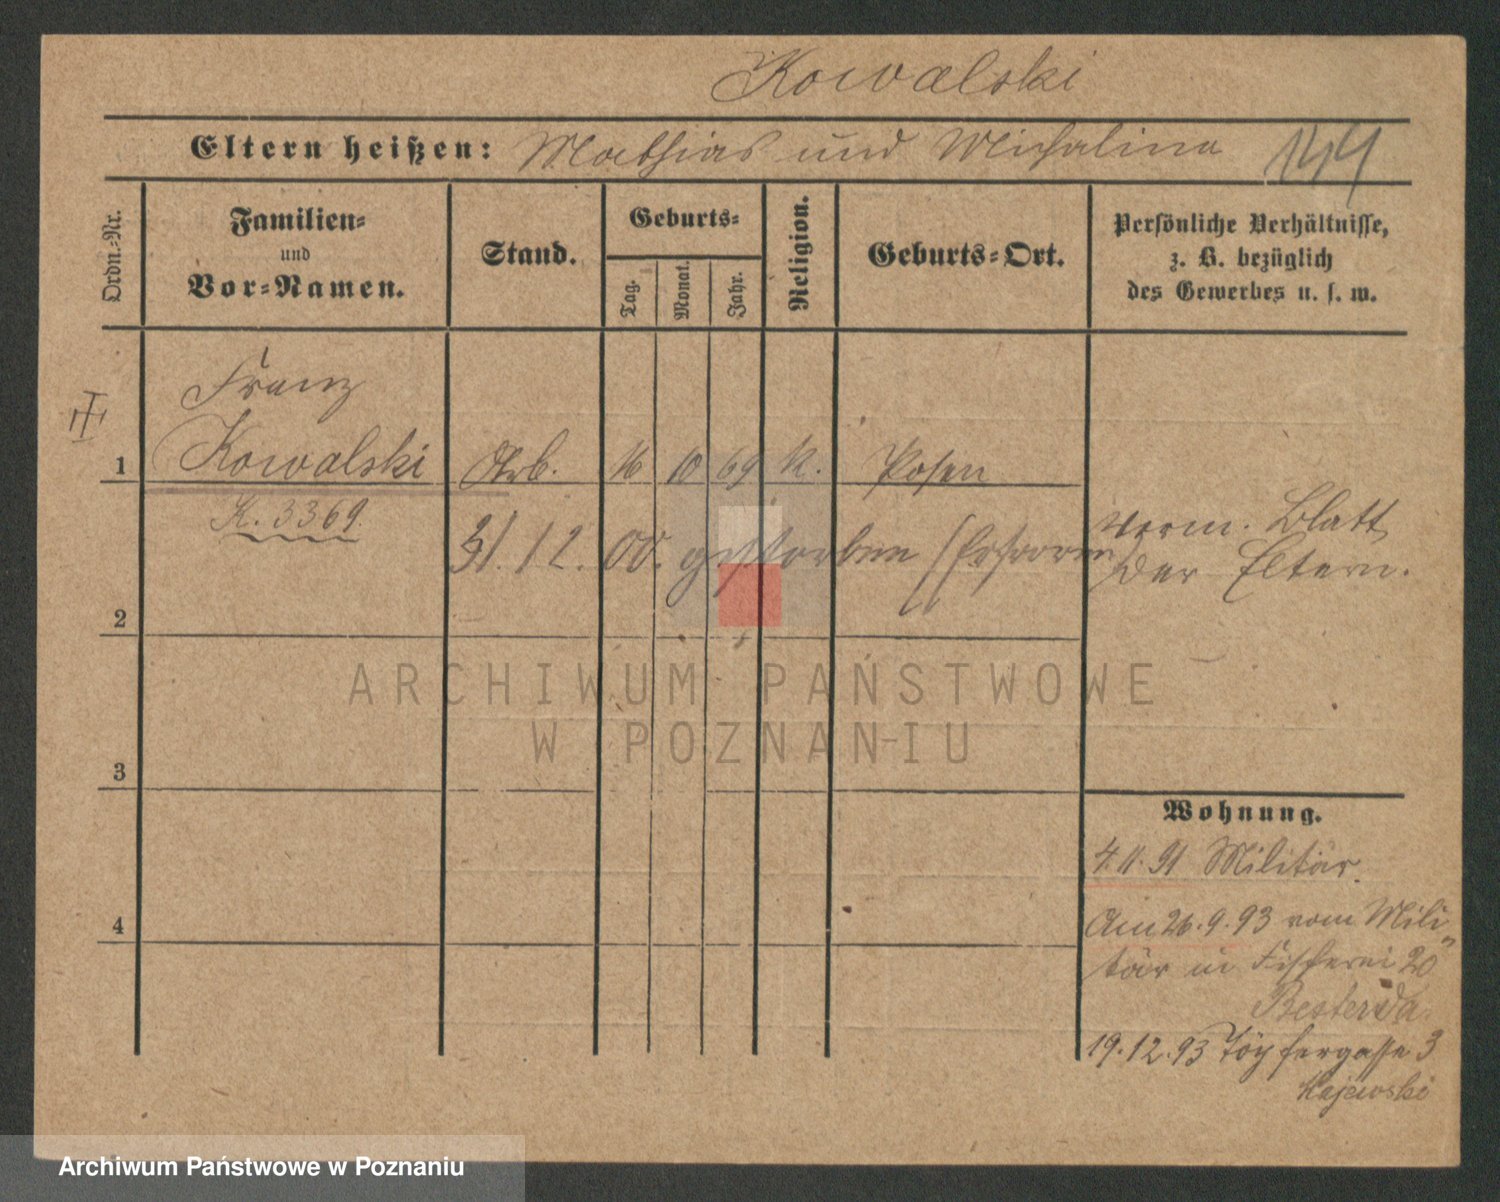 Kowalski
Eltern heißen: Mathias und Michalina 144
Ordn.-Nr.
Familien-
und
Vor-Namen.
Stand.
Geburts-
Tag.
Monat.
Jahr.
Religion.
Geburts-Ort.
Persönliche Verhältnisse,
z. B. bezüglich
des Gewerbes u. s. w.
Franz
1 Kowalski Arb. 16 10 69 K. Posen
K. 3369.
31.12.00. gestorben
verm. Blatt
der Eltern.
2
ARCHIWUM PAŃSTWOWE
W POZNANIU
3
Wohnung.
4.11.91 Militär.
4
Am 26.9.93 vom Mili-
tär in Fischerei 20
Besterda.
19.12.93 Töpfergasse 3
Majewski
Archiwum Państwowe w Poznaniu